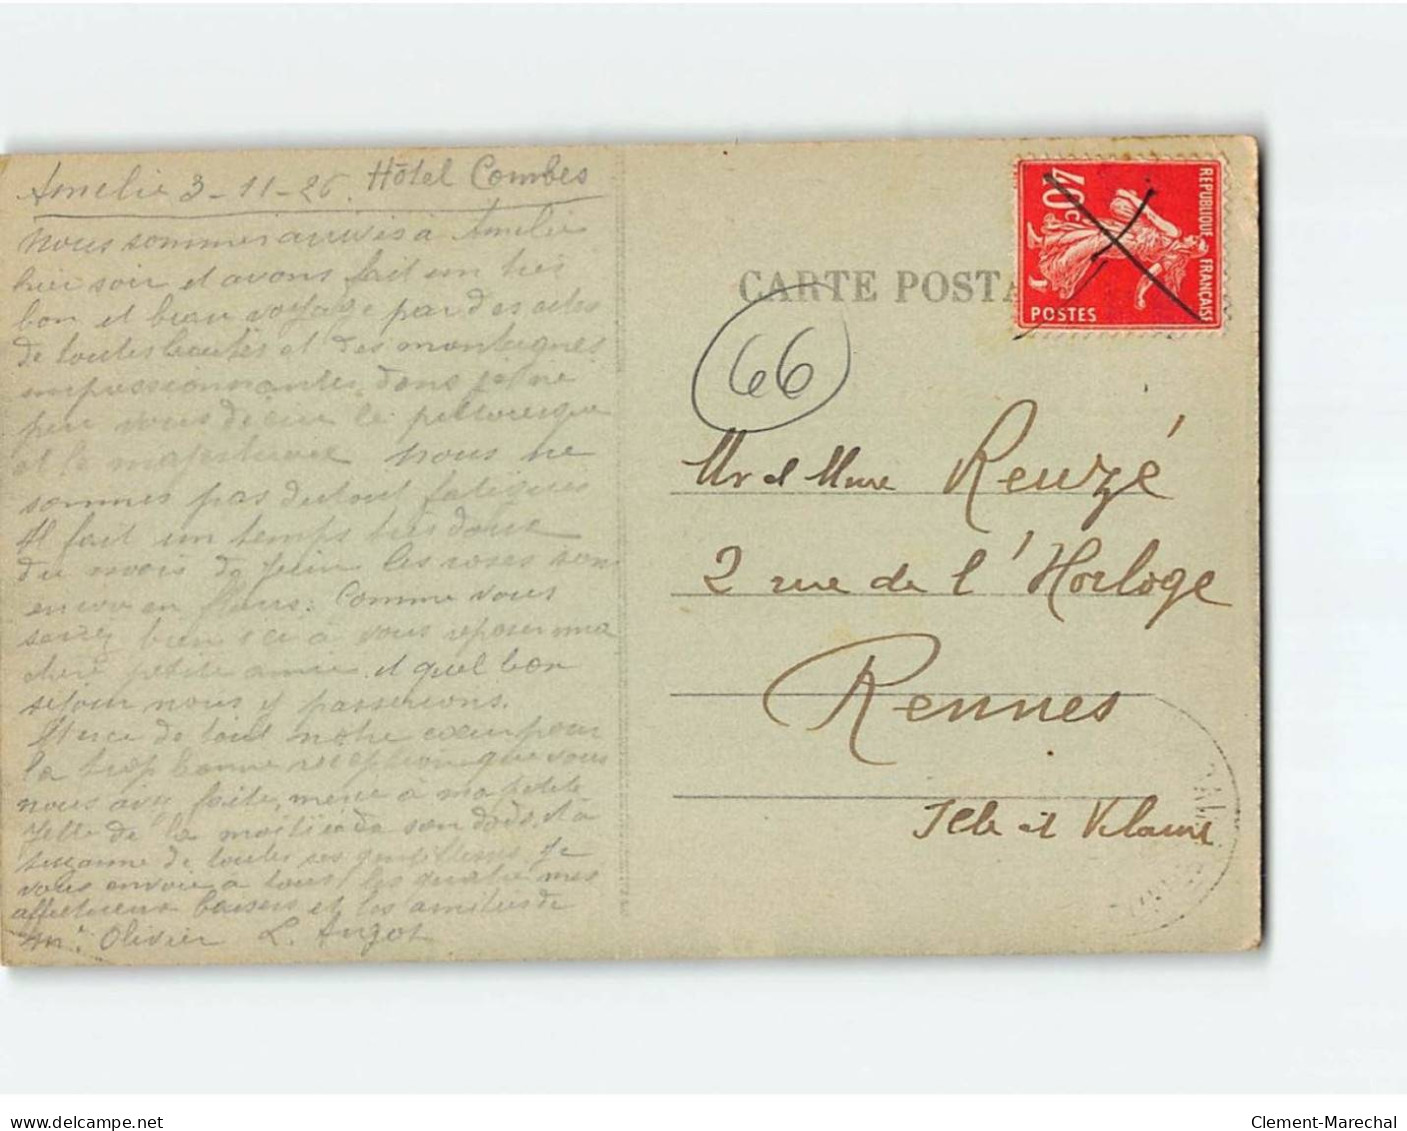 Amelie 3-11-26. Hôtel Combes
Nous sommes arrivés à Amelie
hier soir et avons fait un très
bon et beau voyage par des
de toutes et des montagnes
impressionnantes, dans
peu vous le pittoresque
et le majestueux Nous ne
sommes pas du tout fatigués
Il fait un temps très doux
du mois de juin les roses son
encore en fleurs. Comme vous
seriez bien ici à vous reposer ma
chère petite amie et quel bon
séjour nous y passerions.
Merci de tout notre cœur pour
la trop bonne réception que vous
nous avez faite, merci à ma petite
de la moitié de son dodo, et à
Suzanne de toutes ses gentillesses. Je
vous envoie à tous les quatre mes
affectueux baisers et les amitiés de
Mr Olivier L. Angot
CARTE POSTA
REPUBLIQUE FRANÇAISE
40c
POSTES
66
Mr et Mme Reuzé
2 rue de l'Horloge
Rennes
Ille et Vilaine
delcampe.net
Clement-Marechal